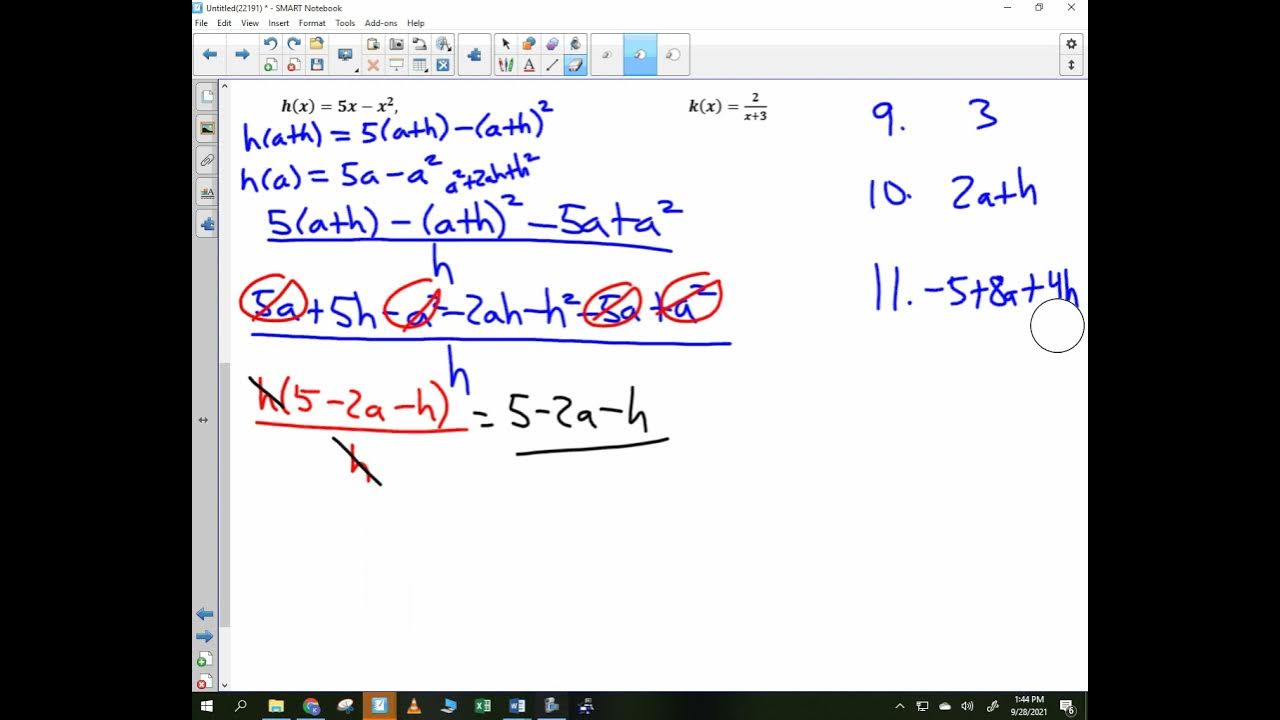 Untitled(22191) * - SMART Notebook
File Edit View Insert Format Tools Add-ons Help
h(x) = 5x − x²,
k(x) = 2/(x+3)
h(a+h) = 5(a+h) − (a+h)²
h(a) = 5a − a² a²+2ah+h²
5(a+h) − (a+h)² − 5a + a²
h
5a + 5h − a² − 2ah − h² − 5a + a²
h
h(5 − 2a − h) = 5 − 2a − h
h
9. 3
10. 2a+h
11. −5+8a+4h
1:44 PM
9/28/2021
6